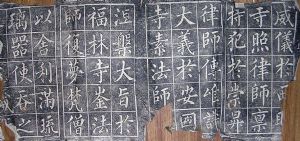 威儀於西明
寺照律師稟
持犯於崇昇
律師傳唯識
大義於安國
寺素法師
涅槃大旨於
福林寺崟法
師復夢梵僧
以舍利滿琉
璃器使吞之